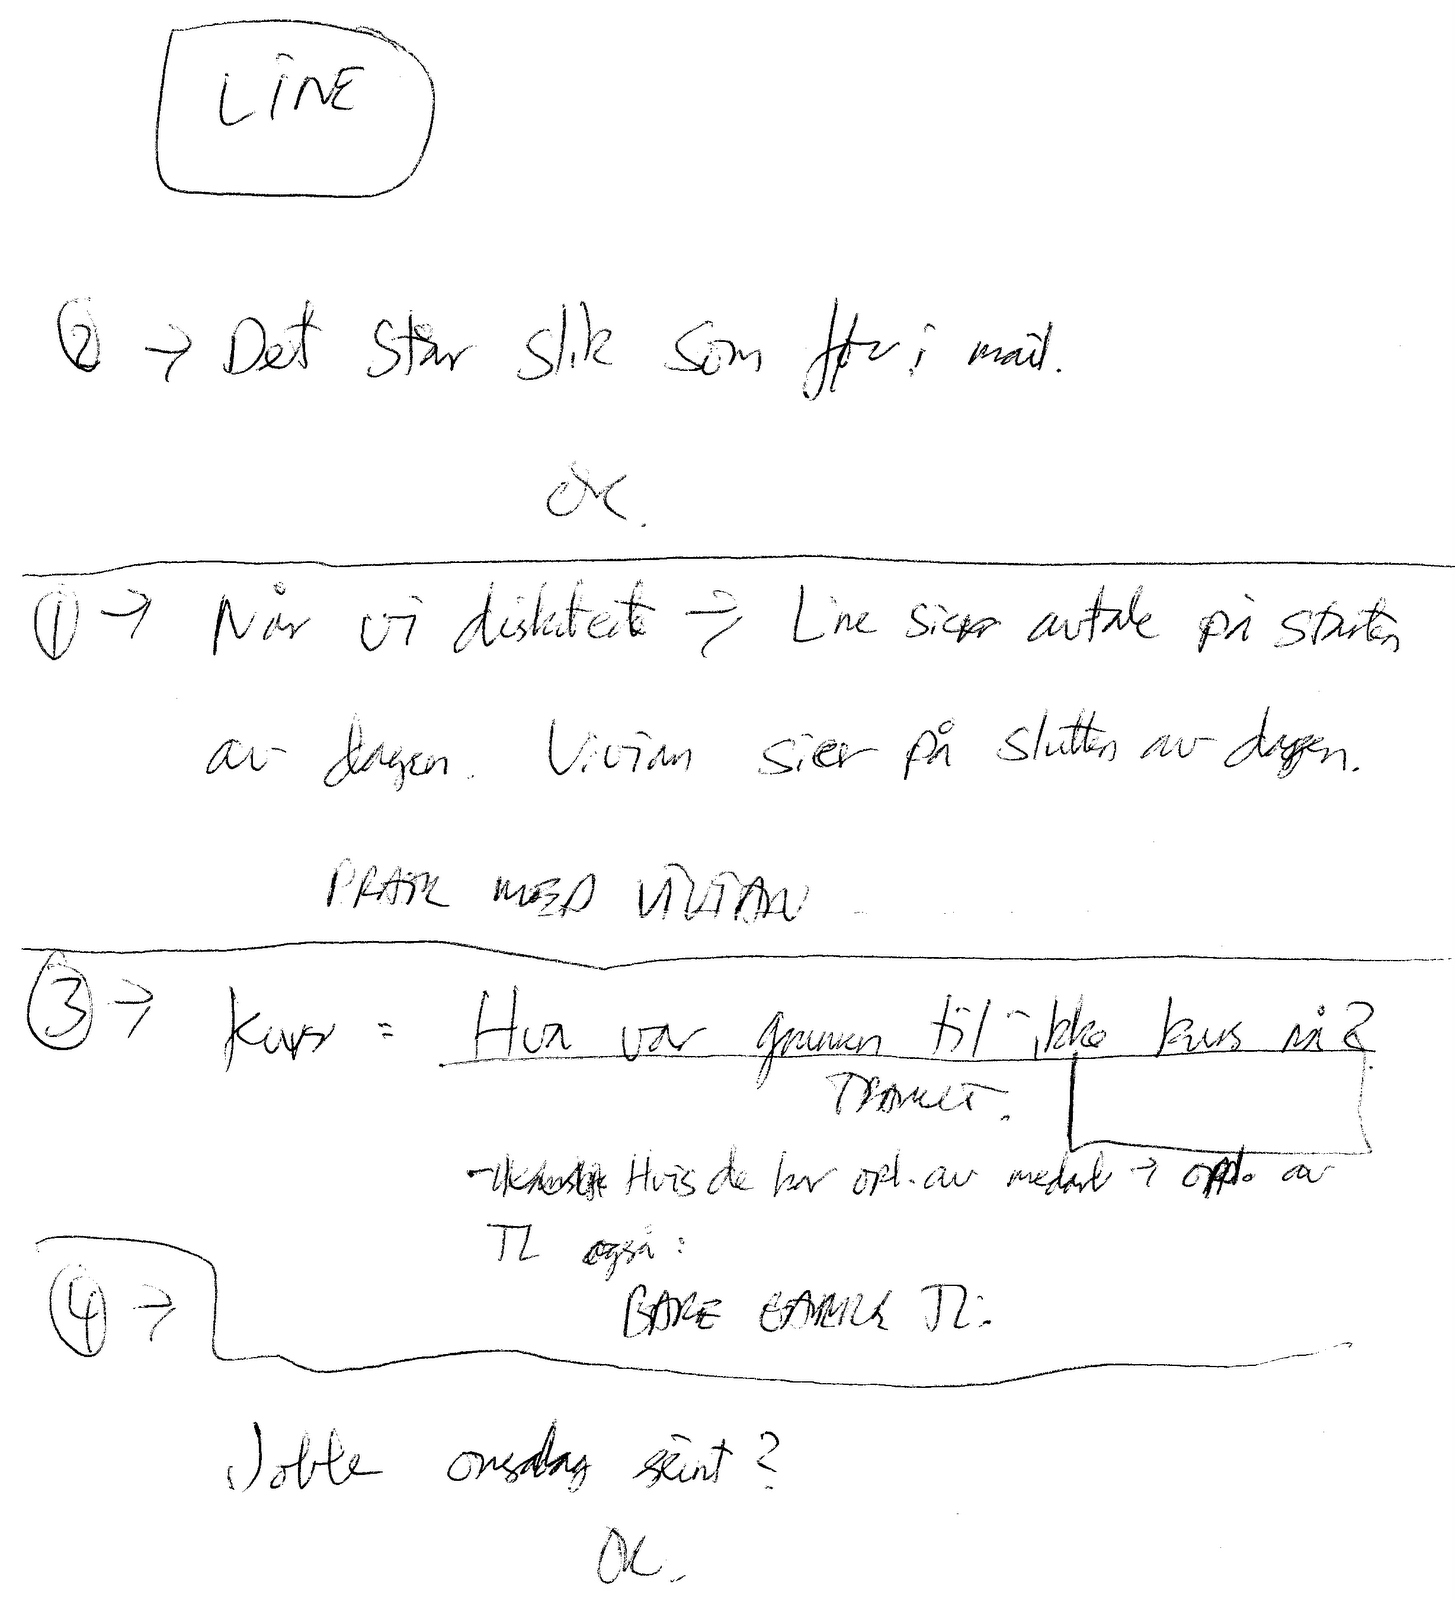 LINE
② → Det står slik som før i mail.
OK.
① → Når vi diskuterte → Line sier avtale på starten
av dagen. Vivian sier på slutten av dagen.
PRATE MED VIVIAN
③ → Kurs = Hva var grunnen til ikke kurs nå?
Hvis de har opl. av medarb → oppl. av
TL også:
BARE TL.
④ →
Jobbe onsdag seint?
OK.